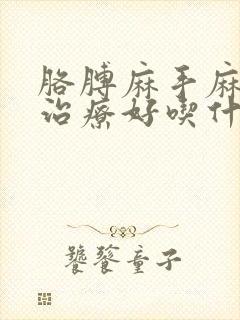 胳膊麻手麻
治療好喫什
饕餮童子